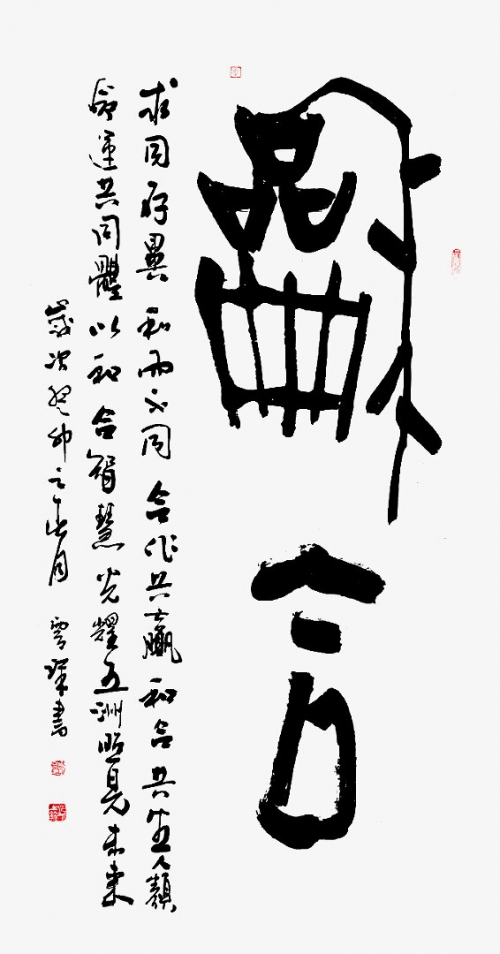 龢合
求同存異和而不同合作共贏和合共生人類
命運共同體以和合智慧光耀五洲照見未來
歲次癸卯之春月雲琛書